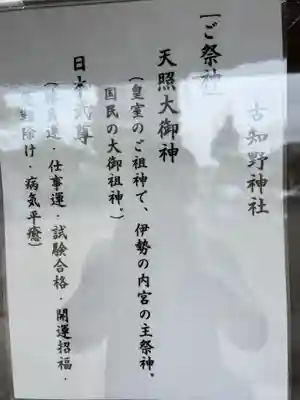 古知野神社
[ご祭神]
天照大御神
(皇室のご祖神で、伊勢の内宮の主祭神。
国民の大御祖神。)
日本武尊
運・仕事運・試験合格・開運招福・
除け・病気平癒)